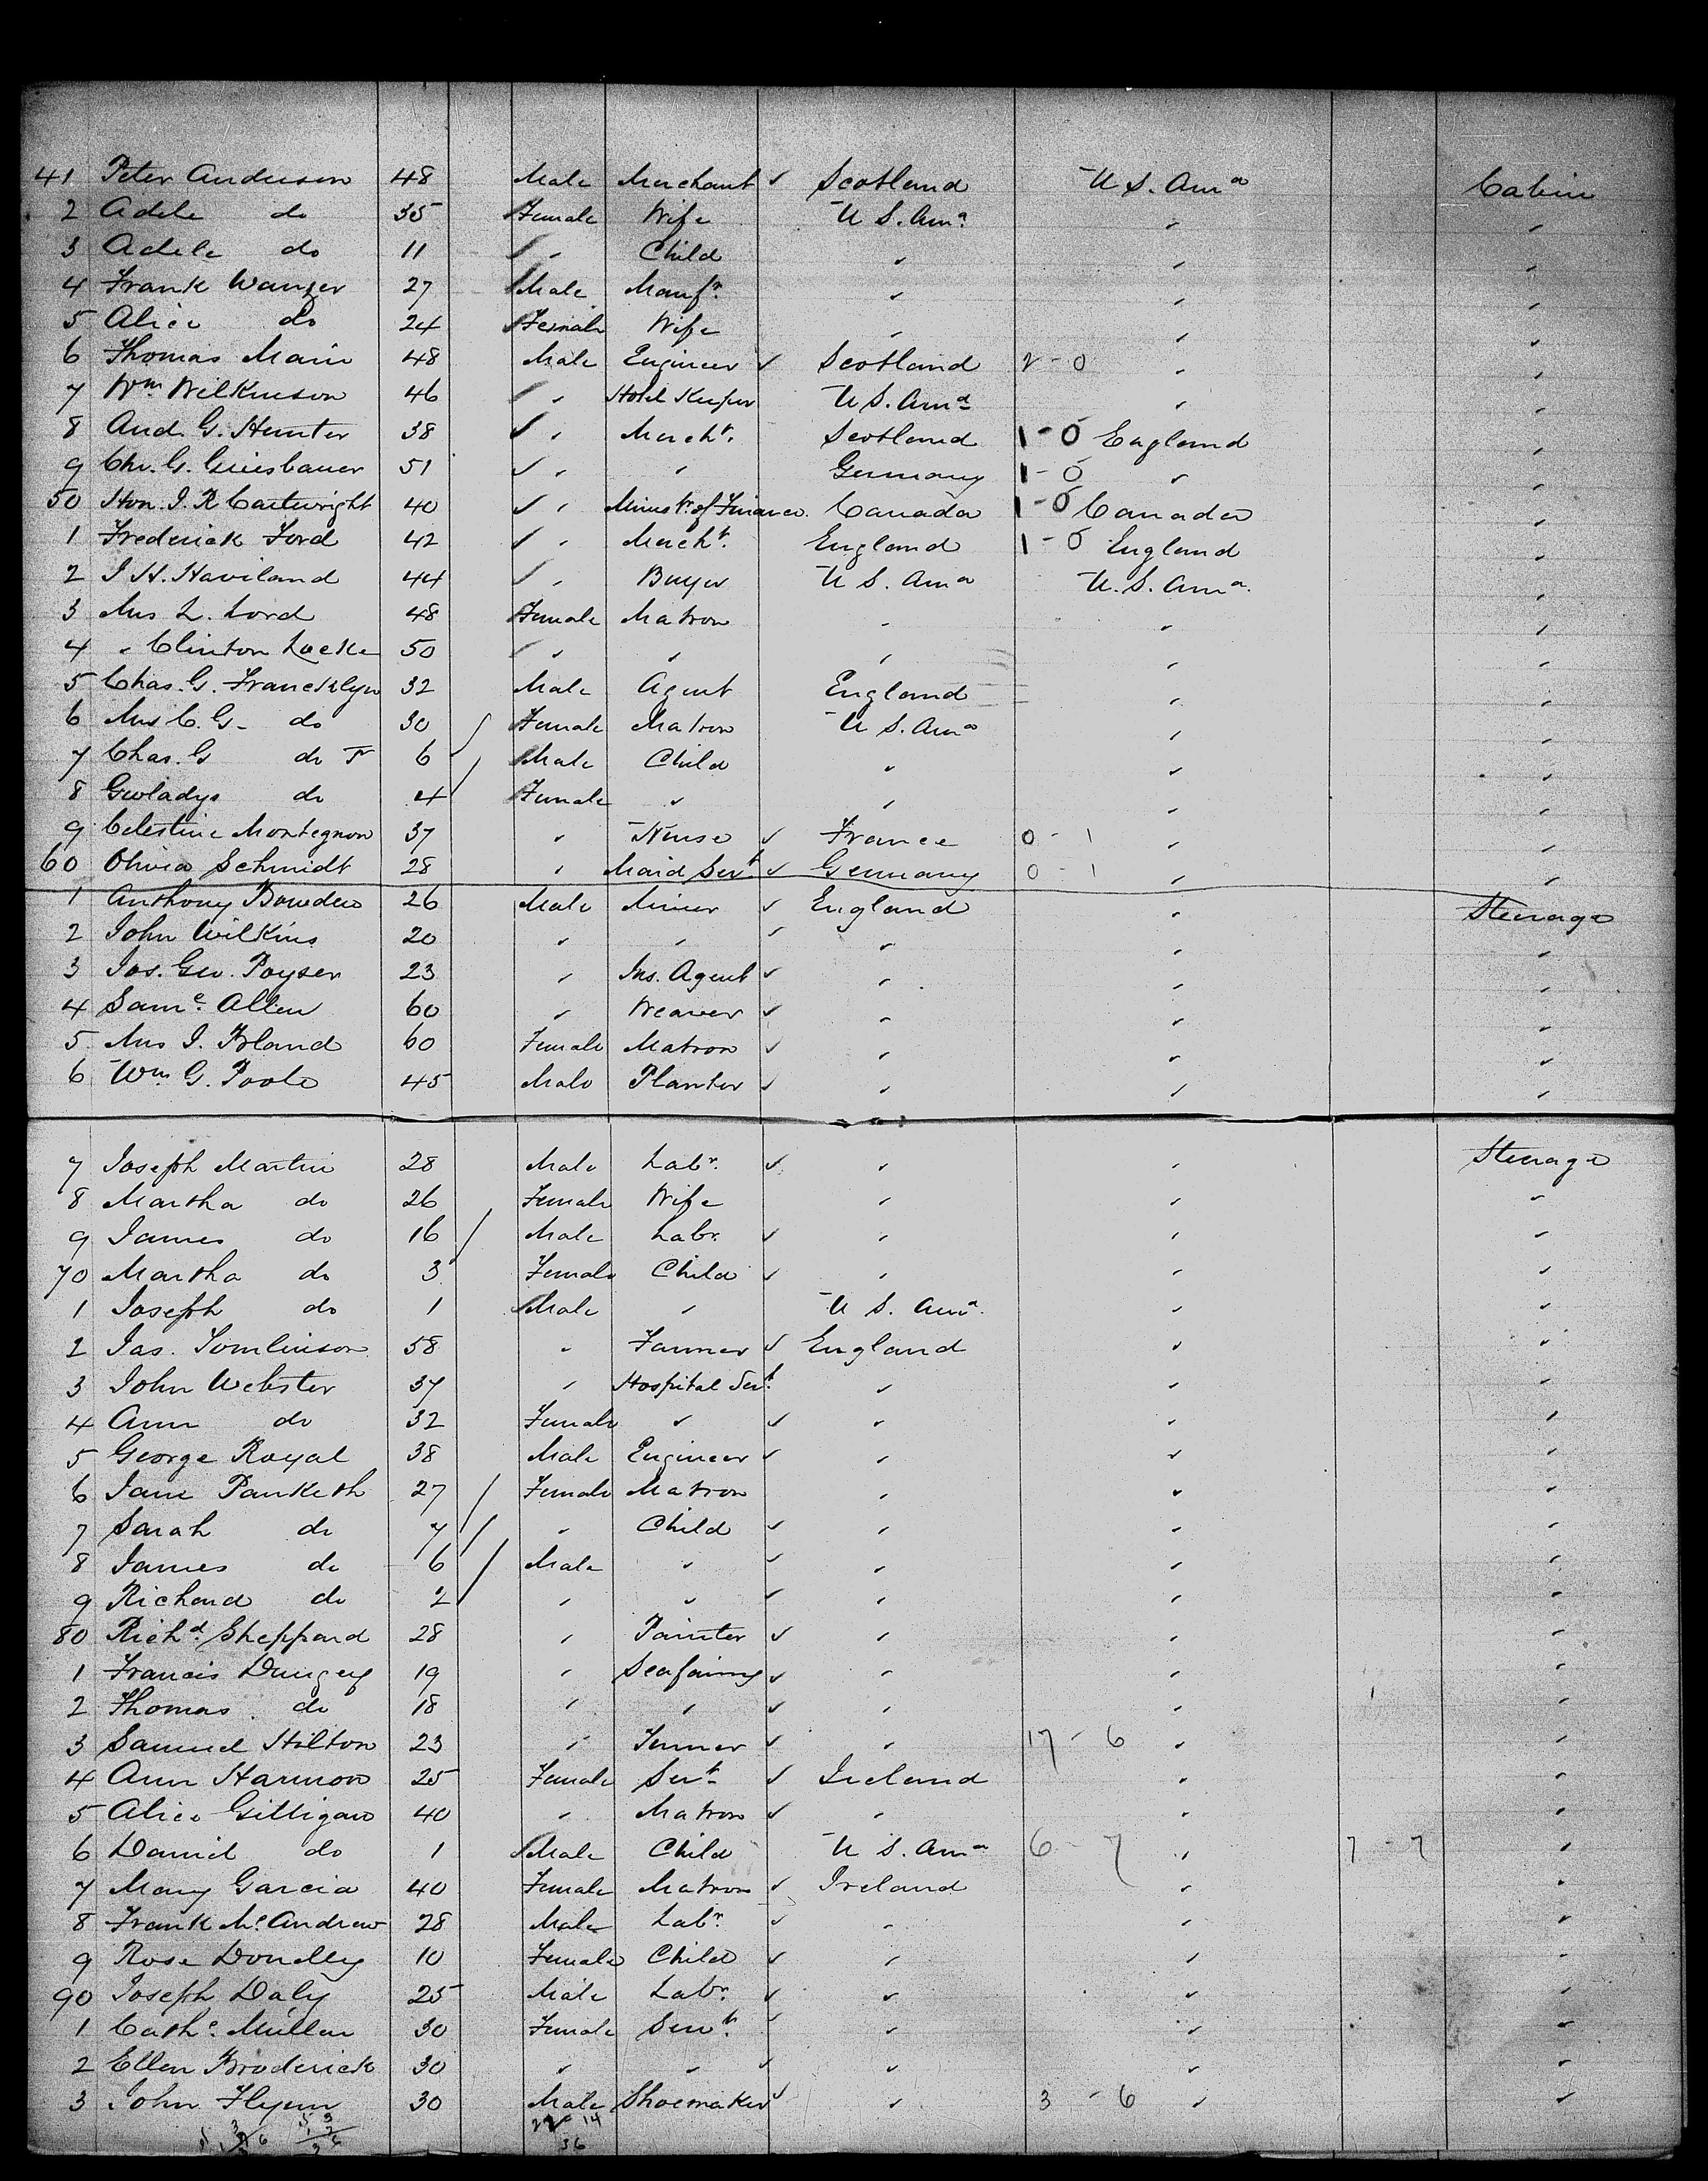 41 Peter Anderson 48 Male Merchant ✓ Scotland U S. Ama Cabin
2 Adele do 35 Female Wife U S. Ama " "
3 Adele do 11 " Child " " "
4 Frank Wanzer 27 Male Manfr. " " "
5 Alice do 24 Female Wife " " "
6 Thomas Main 48 Male Engineer ✓ Scotland 2 - 0 " "
7 Wm. Wilkinson 46 " Hotel Keeper U S. Ama " "
8 And. G. Hunter 38 " Mercht. Scotland 1 - 0 England "
9 Chr. G. 51 " " Germany 1 - 0 " "
50 Hon. J. R Cartwright 40 " Ministr. of Finance. Canada 1 - 0 Canada "
1 Frederick Ford 42 " Mercht. England 1 - 0 England "
2 J H. Haviland 44 " Buyer U S. Ama U. S. Ama. "
3 Mrs L. Lord 48 Female Matron " " "
4 " Clinton Locke 50 " " " " "
5 Chas. G. Francklyn 32 Male Agent England " "
6 Mrs C. G. do 30 Female Matron U S. Ama " "
7 Chas. G do Jr 6 Male Child " " "
8 Gwladys do 4 Female " " " "
9 Celestine Montegnon 37 " Nurse ✓ France 0 - 1 " "
60 Olivia Schmidt 28 " Maid Servt. ✓ Germany 0 - 1 " "
1 Anthony Bowden 26 Male Miner ✓ England " Steerage
2 John Wilkins 20 " " ✓ " " "
3 Jos. Geo. Poyser 23 " Ins. Agent ✓ " " "
4 Saml. Allen 60 " Weaver ✓ " " "
5 Mrs J. 60 Female Matron ✓ " " "
6 Wm. G. Poole 45 Male Planter ✓ " " "
7 Joseph Martin 28 Male Labr. ✓ " " Steerage
8 Martha do 26 Female Wife " " "
9 James do 16 Male Labr. ✓ " " "
70 Martha do 3 Female Child ✓ " " "
1 Joseph do 1 Male " U S. Ama. " "
2 Jas. Tomlinson 58 " Farmer ✓ England " "
3 John Webster 37 " Hospital Servt. " " "
4 Ann do 32 Female " ✓ " " "
5 George Royal 38 Male Engineer ✓ " " "
6 Jane Panketh 27 Female Matron " " "
7 Sarah do 7 " Child ✓ " " "
8 James do 6 Male " ✓ " " "
9 Richard do 2 " " ✓ " " "
80 Richd. Sheppard 28 " Painter ✓ " " "
1 Francis Dungey 19 " Seafaring ✓ " " "
2 Thomas do 18 " " ✓ " " "
3 Samuel Hilton 23 " ✓ " 17 - 6 " "
4 Ann Harmon 25 Female Servt. ✓ Ireland " "
5 Alice Gilligan 40 " Matron ✓ " " "
6 Daniel do 1 Male Child U S. Ama 6 - 7 " 7 - 7 "
7 Mary Garcia 40 Female Matron ✓ Ireland " "
8 Frank Mc. Andrew 28 Male Labr. ✓ " " "
9 Rose Donelly 10 Female Child ✓ " " "
90 Joseph Daly 25 Male Labr. ✓ " " "
1 Cathe. Mullen 30 Female Servt. ✓ " " "
2 Ellen Broderick 30 " " ✓ " " "
3 John Flynn 30 Male Shoemaker ✓ " 3 - 6 " "
14
36